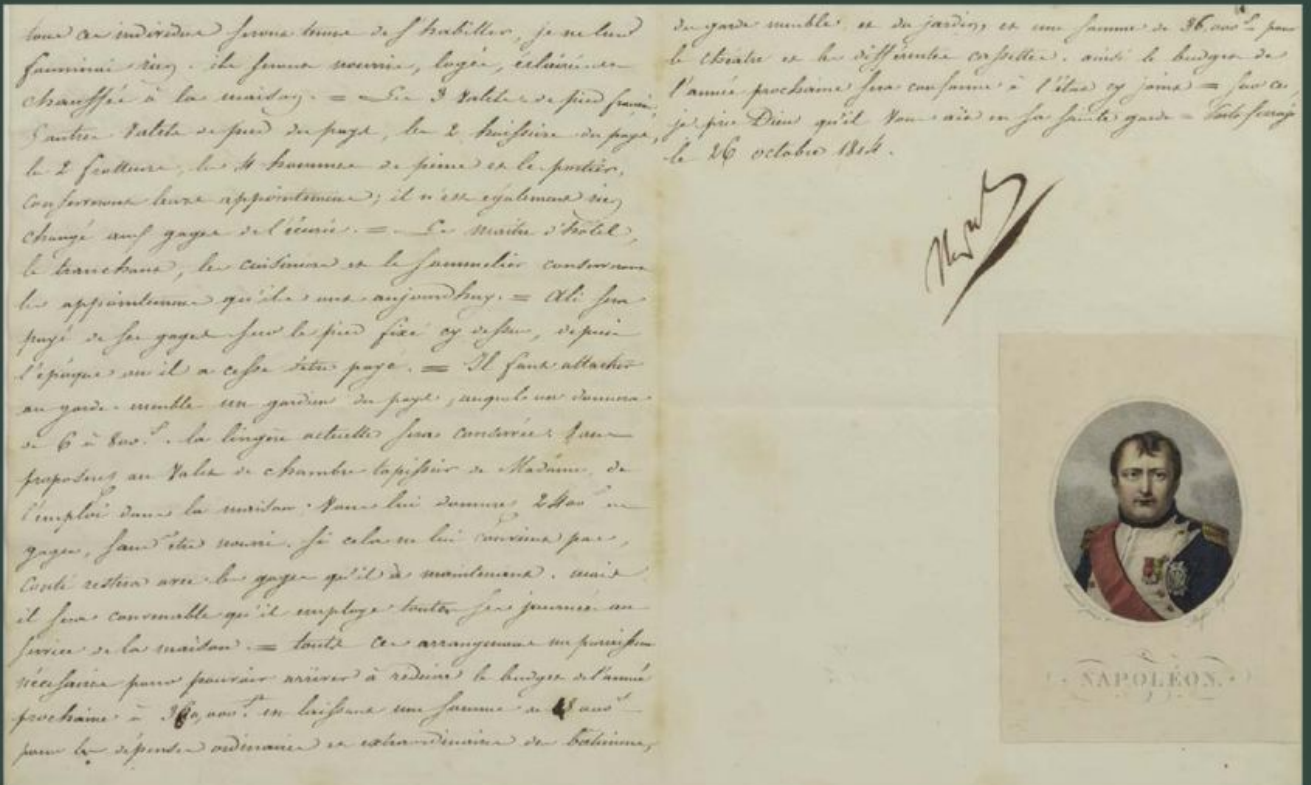 tous ces individus seront tenus de s'habiller, je ne leur
fournirai rien. ils seront nourris, logés, éclairés et
chauffés à la maison. = Les 3 valets de pied français,
autres valets de pied du pays, les 2 huissiers du pays,
les 2 frotteurs, les 4 hommes de peine et le portier,
conserveront leurs appointemens; il n'est également rien
changé aux gages de l'écurie. = Le maitre d'hôtel,
le tranchant, les cuisiniers et le sommelier conserveront
les appointemens qu'ils ont aujourd'huy. = Ali sera
payé de ses gages sur le pied fixé cy dessus, depuis
l'époque où il a cessé d'être payé. = Il faut attacher
au garde-meuble un gardien du pays, auquel on donnera
de 6 à 800 f. la lingère actuelle sera conservée. Vous
proposerez au valet de chambre tapissier de Madame, de
l'emploi dans la maison. Vous lui donnerez 2400 f de
gages, sans être nourri. si cela ne lui convient pas,
Conté restera avec les gages qu'il a maintenant. mais
il sera convenable qu'il employe toutes ses journées au
service de la maison. = toutes ces arrangemens me paraissent
nécessaires pour pouvoir arriver à réduire le budget de l'année
prochaine à 360,000 f. en laissant une somme de 48 000 f
pour les dépenses ordinaires et extraordinaires des bâtimens,
du garde meuble et du jardin, et une somme de 36,000 f pour
le théatre et les différentes cassettes. ainsi le budget de
l'année prochaine sera conforme à l'état cy joint = sur ce,
je prie Dieu qu'il vous ait en sa sainte garde = Porto ferrajo
le 26 octobre 1814.
NAPOLÉON.